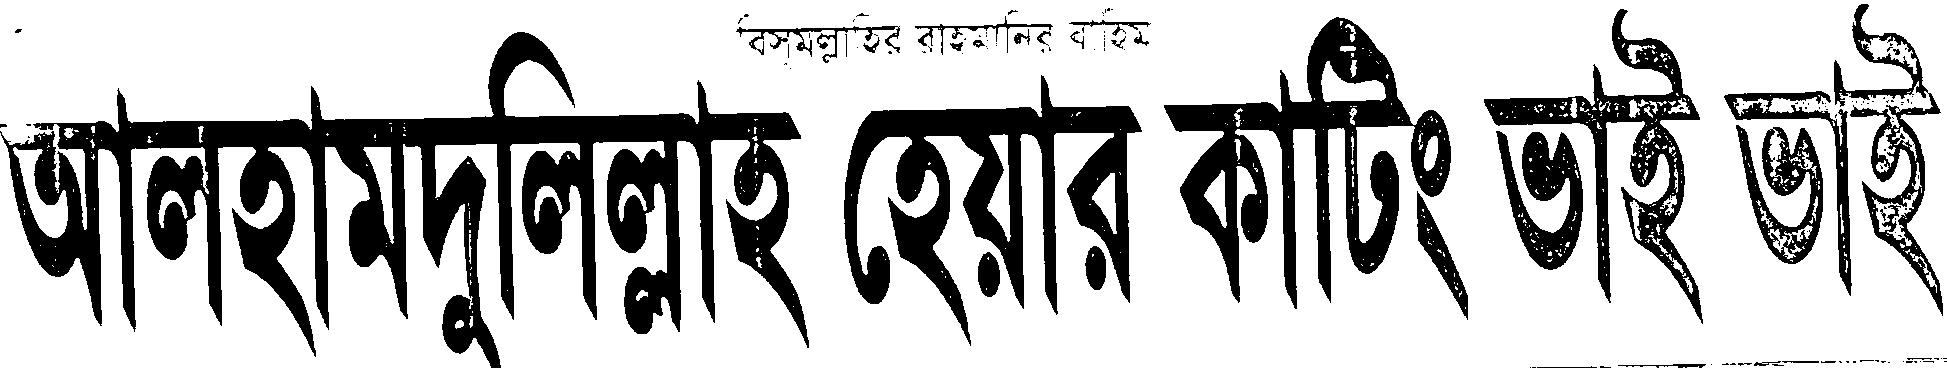 বিসমল্লাহির রাহমানির রাহিম
আলহামদুলিল্লাহ হেয়ার কাটিং ভাই ভাই